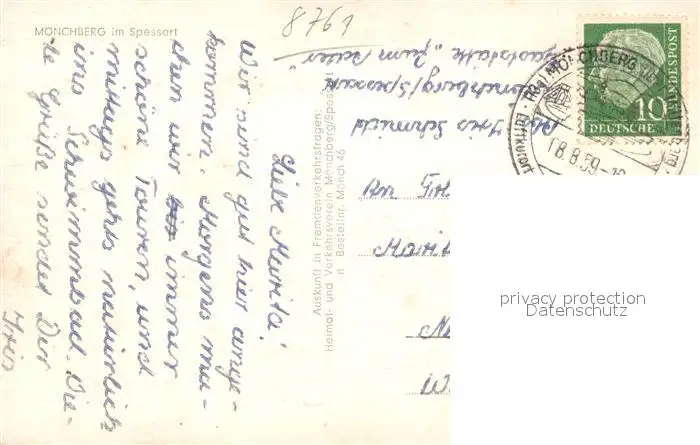 MÖNCHBERG im Spessart
8761
Liebe Marita!
Wir sind gut hier ange-
kommen. Morgens ma-
chen wir immer
schöne Touren, und
mittags gehts natürlich
ins Schwimmbad. Die-
te Grüße sendet Dir
Iris
Auskunft in Fremdenverkehrsfragen:
Heimat- und Verkehrsverein Mönchberg/Spessart
n Bestellnr. Mönch 46
Iris Schmidt
Mönchberg/Spessart
Gaststätte "Zum
An
Marit
W
MÖNCHBERG
Luftkurort
18.8.59
10
DEUTSCHE BUNDESPOST
privacy protection
Datenschutz